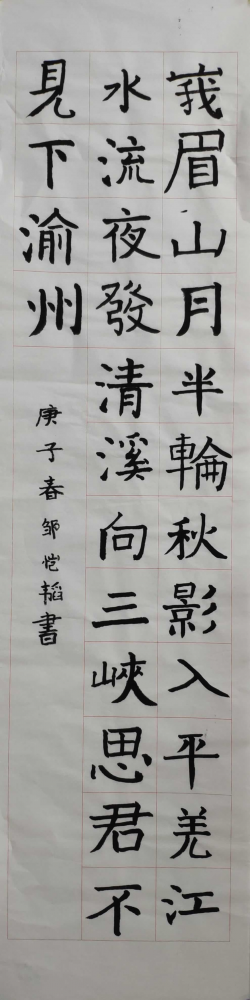 峩眉山月半輪秋影入平羌江
水流夜發清溪向三峽思君不
見下渝州
庚子春邹恺韬書